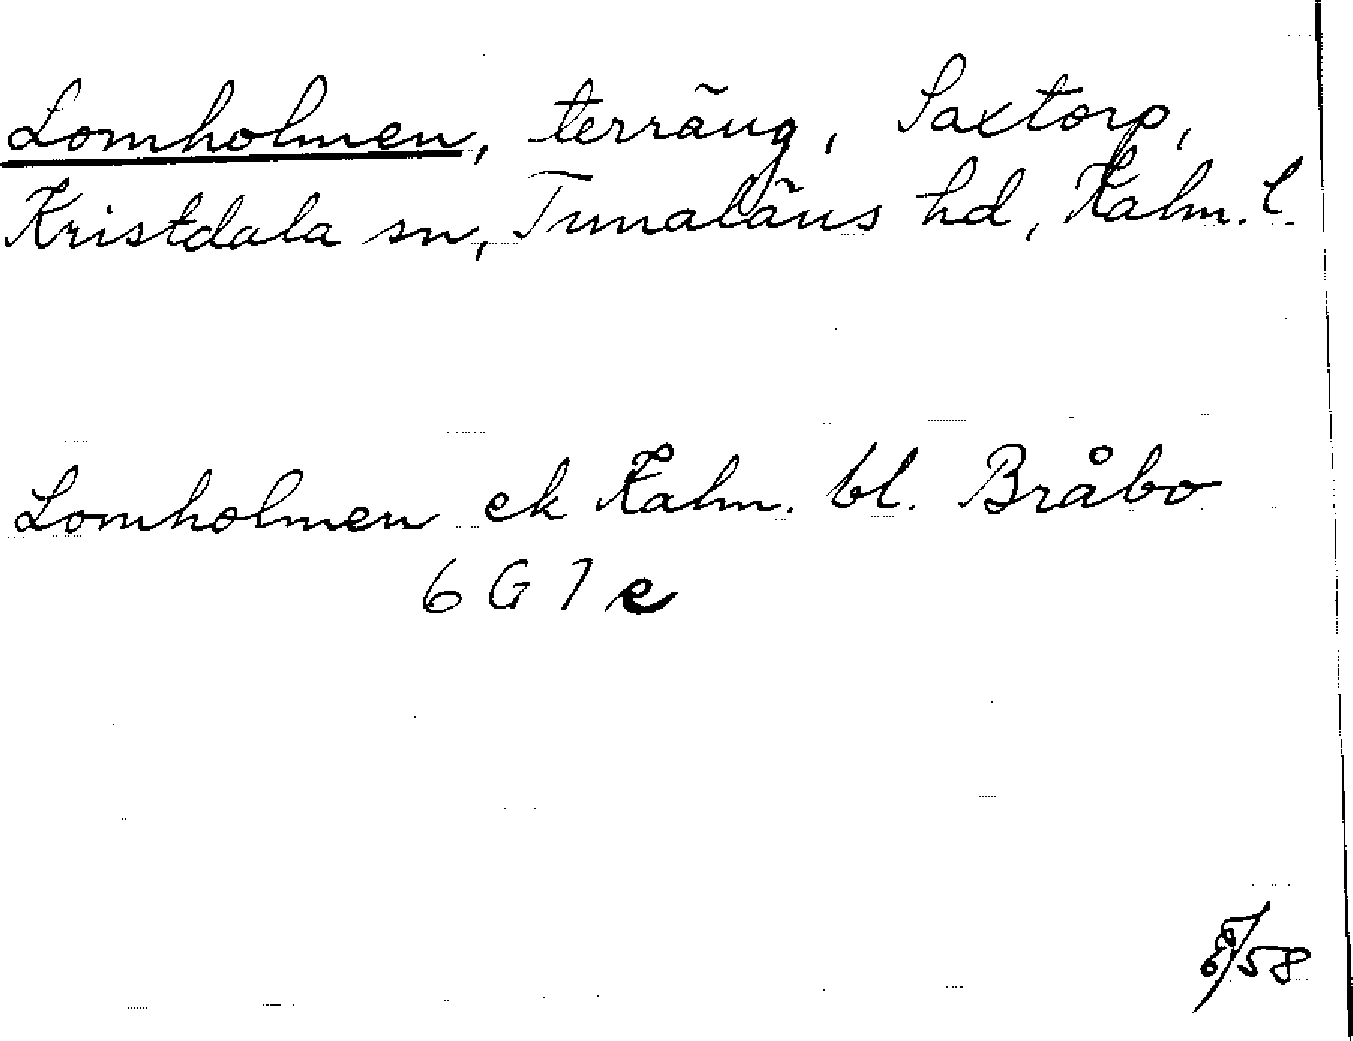 Lomholmen, terräng, Saxtorp,
Kristdala sn, Tunaläns hd, Kalm. l.
Lomholmen ek Kalm. bl. Bråbo
6 G 7 e